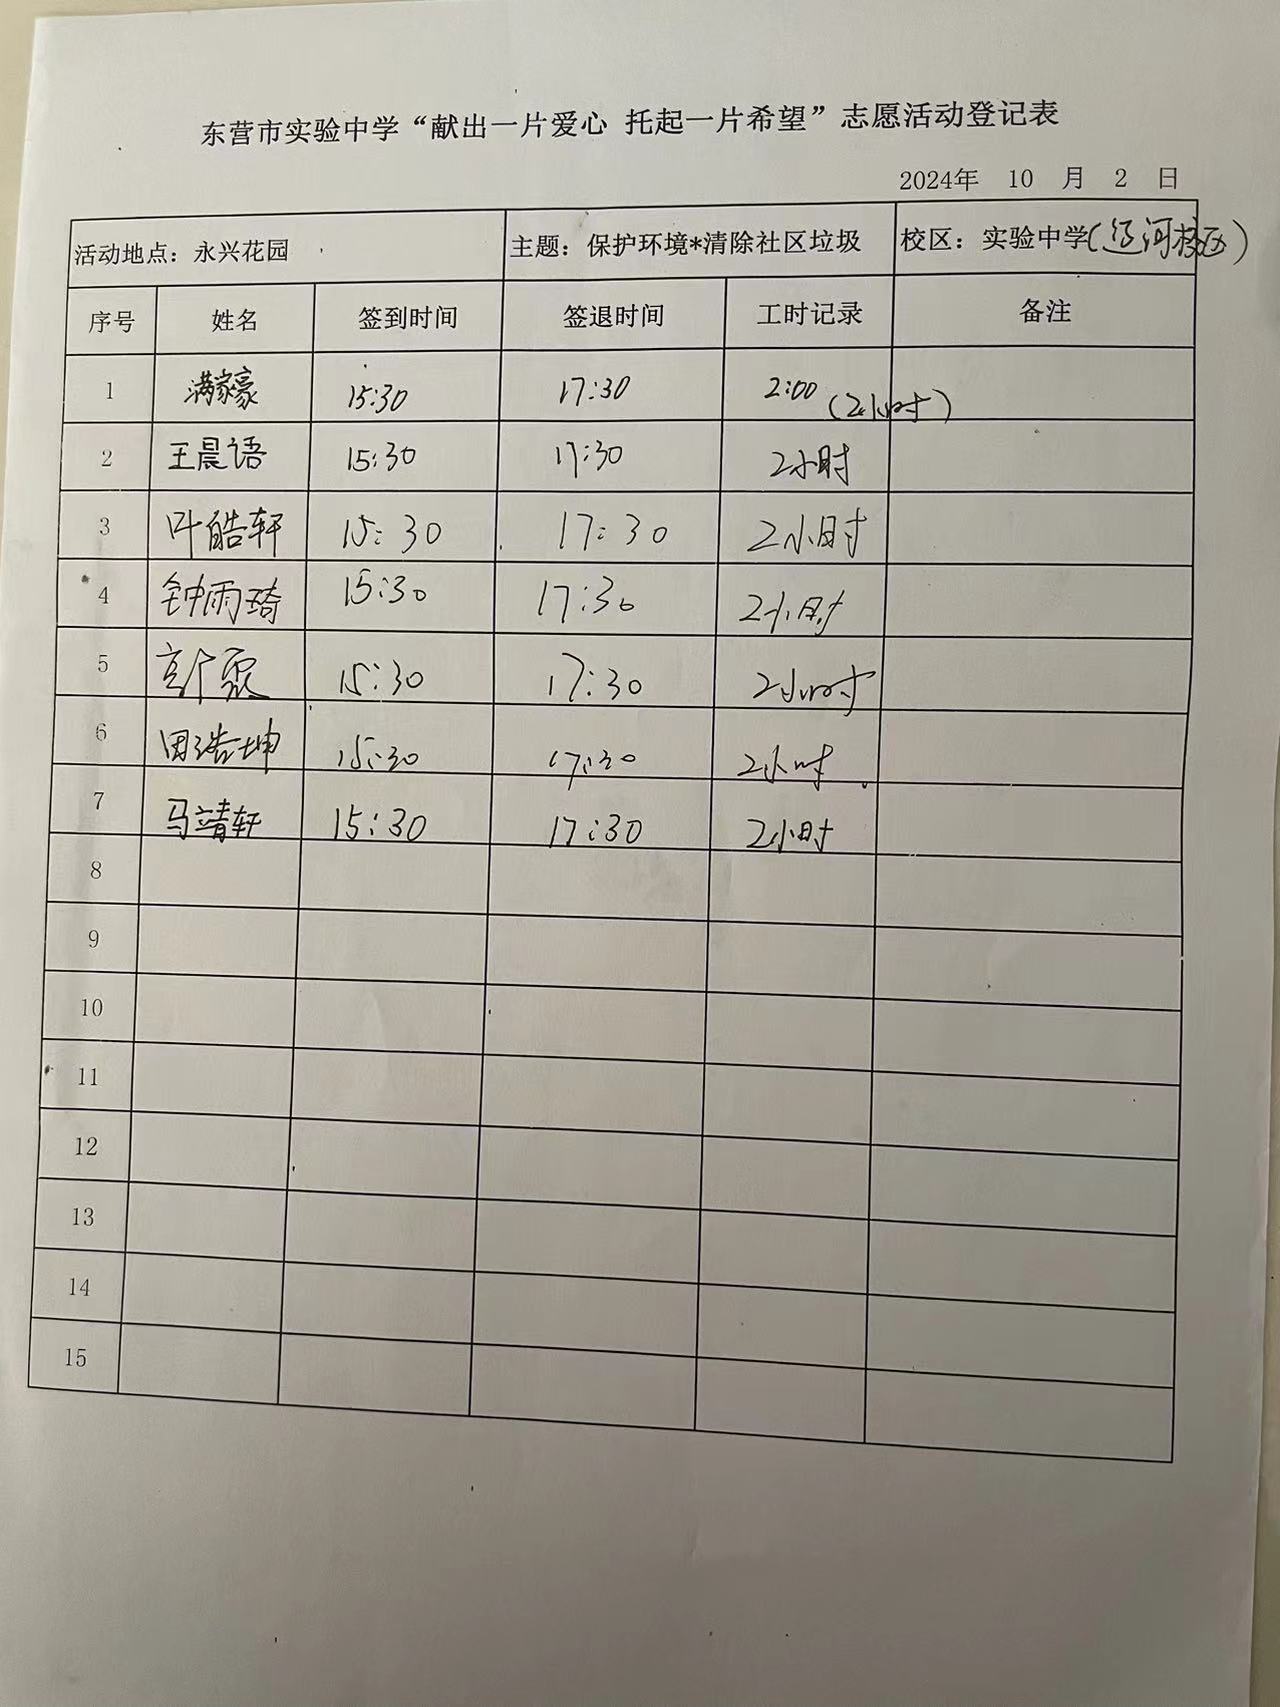 东营市实验中学“献出一片爱心 托起一片希望”志愿活动登记表
2024年 10 月 2 日
活动地点：永兴花园 主题：保护环境*清除社区垃圾 校区：实验中学(辽河校区)
序号 姓名 签到时间 签退时间 工时记录 备注
1 满家豪 15:30 17:30 2:00 (2小时)
2 王晨语 15:30 17:30 2小时
3 叶皓轩 15:30 17:30 2小时
4 钟雨琦 15:30 17:30 2小时
5 15:30 17:30 2小时
6 田浩坤 15:30 17:30 2小时
7 马靖轩 15:30 17:30 2小时
8
9
10
11
12
13
14
15